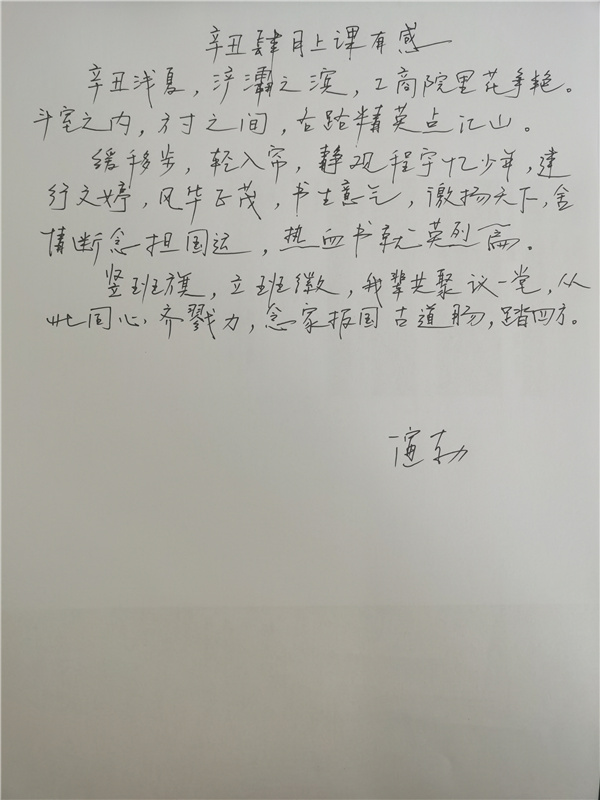 辛丑肆月上课有感
辛丑浅夏，浐灞之滨，工商院里花争艳。
斗室之内，方寸之间，各路精英点江山。
缓移步，轻入帘，静观程宇忆少年，建
行文婷，风华正茂，书生意气，激扬天下，舍
情断念担国运，热血书就英烈篇。
竖班旗，立班徽，我辈共聚议一堂，从
此同心齐戮力，念家报国古道肠，踏四方。